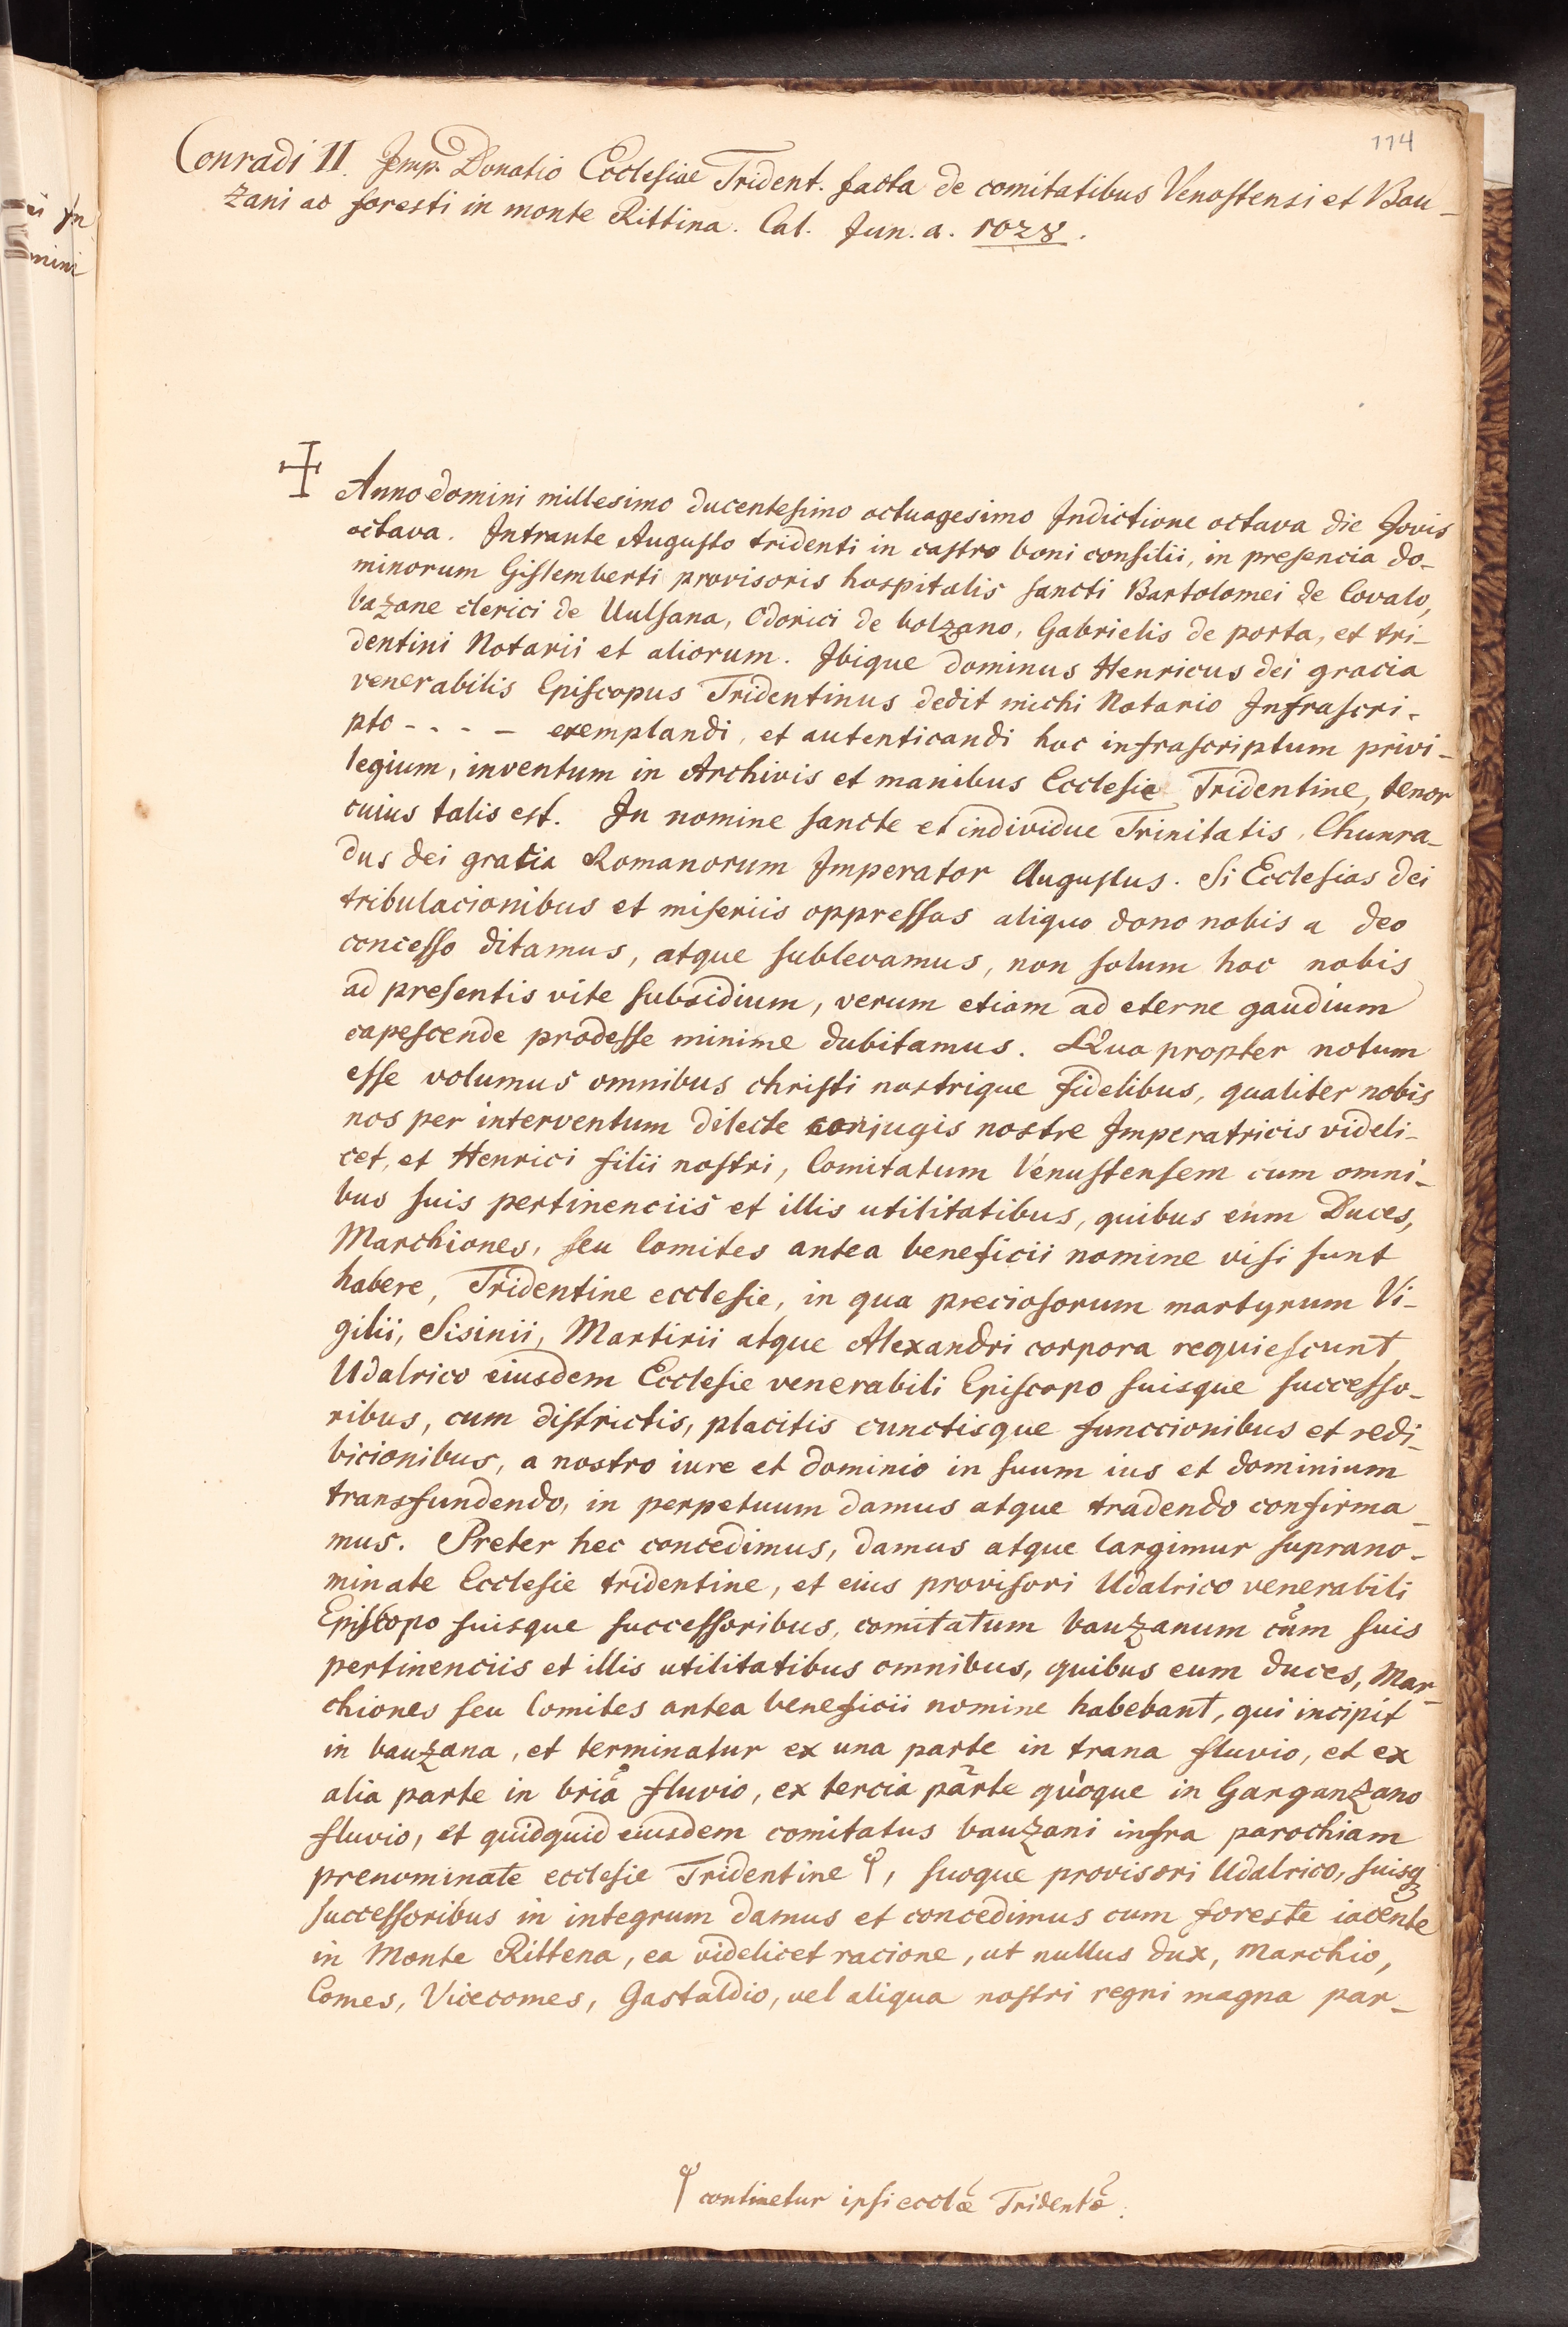 114
Conradi II. Imp. Donatio Ecclesiae Trident. facta de comitatibus Venostensi et Bau-
zani ac foresti in monte Rittina. Cal. Jun. a. 1028.
Anno domini millesimo ducentesimo octuagesimo Indictione octava die Jovis
octava. Intrante Augusto tridenti in castro boni consilii, in presencia do-
minorum Gislemberti provisoris hospitalis sancti Bartolomei de Covalo,
bazane clerici de Uulsana, Odorici de bolzano, Gabrielis de porta, et tri-
dentini Notarii et aliorum. Ibique dominus Henricus dei gracia
venerabilis Episcopus Tridentinus dedit michi Notario Infrascri-
pto - - - - exemplandi, et autenticandi hoc infrascriptum privi-
legium, inventum in Archivis et manibus Ecclesie Tridentine, tenor
cuius talis est. In nomine sancte et individue Trinitatis, Chunra-
dus dei gratia Romanorum Imperator Augustus. Si Ecclesias dei
tribulacionibus et miseriis oppressas aliquo dono nobis a deo
concesso ditamus, atque sublevamus, non solum hoc nobis
ad presentis vite subsidium, verum etiam ad eterne gaudium
capescende prodesse minime dubitamus. Qua propter notum
esse volumus omnibus christi nostrique fidelibus, qualiter nobis
nos per interventum dilecte conjugis nostre Imperatricis videli-
cet, et Henrici filii nostri, Comitatum Venustensem cum omni-
bus suis pertinenciis et illis utilitatibus, quibus eum Duces,
Marchiones, seu Comites antea beneficii nomine visi sunt
habere, Tridentine ecclesie, in qua preciosorum martyrum Vi-
gilii, Sisinii, Martirii atque Alexandri corpora requiescunt
Udalrico eiusdem Ecclesie venerabili Episcopo suisque successo-
ribus, cum districtis, placitis cunctisque funccionibus et redi-
bicionibus, a nostro iure et dominio in suum ius et dominium
transfundendo, in perpetuum damus atque tradendo confirma-
mus. Preter hec concedimus, damus atque largimur suprano-
minate Ecclesie tridentine, et eius provisori Udalrico venerabili
Episcopo suisque successoribus, comitatum bauzanum cum suis
pertinenciis et illis utilitatibus omnibus, quibus eum duces, Mar-
chiones seu Comites antea beneficii nomine habebant, qui incipit
in bauzana, et terminatur ex una parte in trana fluvio, et ex
alia parte in bria fluvio, ex tercia parte quoque in Garganzano
fluvio, et quidquid eiusdem comitatus bauzani infra parochiam
prenominate ecclesie Tridentine φ, suoque provisori Udalrico, suisq
successoribus in integrum damus et concedimus cum foreste iacente
in Monte Rittena, ea videlicet racione, ut nullus dux, Marchio,
Comes, Vicecomes, Gastaldio, vel aliqua nostri regni magna par-
φ continetur ipsi ecclæ Tridentæ.